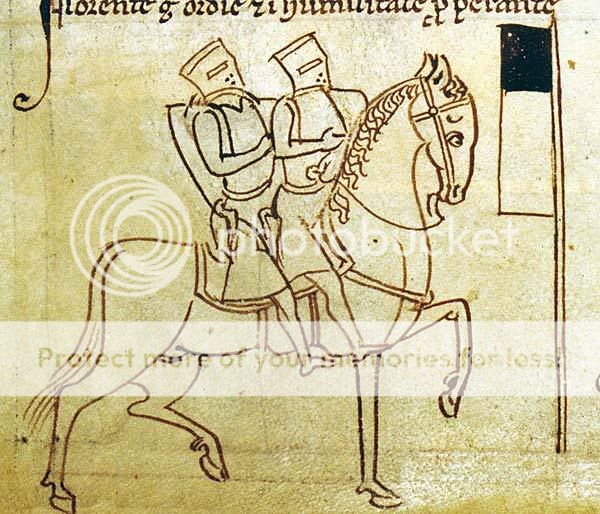 florente g ordie ⁊ i humilitate pperante
photobucket
Protect more of your memories for less!